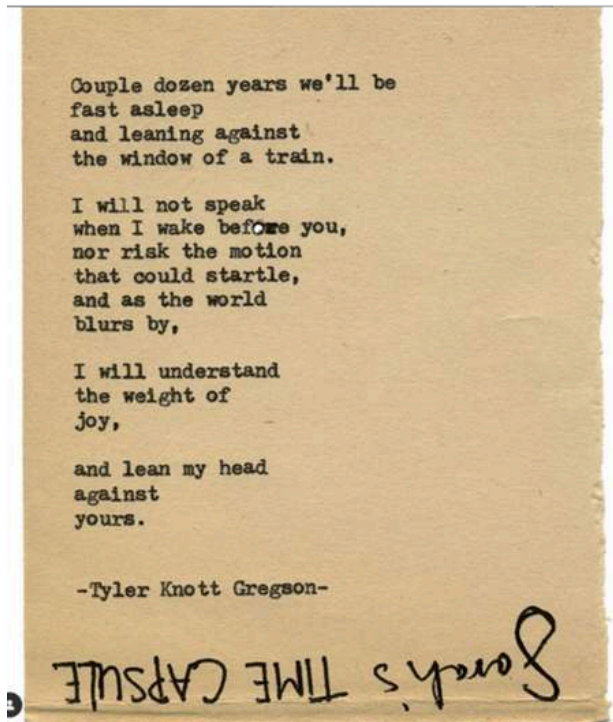 Couple dozen years we'll be
fast asleep
and leaning against
the window of a train.
I will not speak
when I wake before you,
nor risk the motion
that could startle,
and as the world
blurs by,
I will understand
the weight of
joy,
and lean my head
against
yours.
-Tyler Knott Gregson-
Sarah's TIME CAPSULE